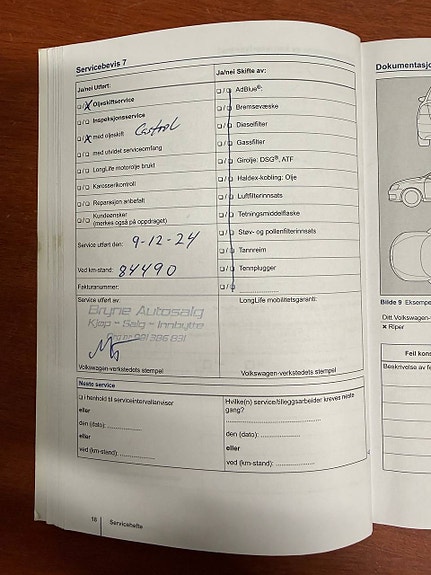 Servicebevis 7
Ja/nei Utført:
Oljeskiftservice
Inspeksjonsservice
med oljeskift Castrol
med utvidet serviceomfang
LongLife motorolje brukt
Karosserikontroll
Reparasjon anbefalt
Kundeønsker
(merkes også på oppdraget)
Service utført den: 9-12-24
Ved km-stand: 84490
Fakturanummer:
Ja/nei Skifte av:
AdBlue®:
Bremsevæske
Dieselfilter
Gassfilter
Girolje: DSG®, ATF
Haldex-kobling: Olje
Luftfilterinnsats
Tetningsmiddelflaske
Støv- og pollenfilterinnsats
Tannreim
Tennplugger
Service utført av:
Bryne Autosalg
Kjøp - Salg - Innbytte
Volkswagen-verkstedets stempel
LongLife mobilitetsgaranti:
Volkswagen-verkstedets stempel
Neste service
i henhold til serviceintervallanviser
eller
den (dato):
eller
ved (km-stand):
Hvilke(n) service/tilleggsarbeider kreves neste
gang?
den (dato):
eller
ved (km-stand):
18
Servicehefte
Dokumentasjo
Bilde 9 Eksempe
Ditt Volkswagen-
× Riper
Feil kons
Beskrivelse av fe